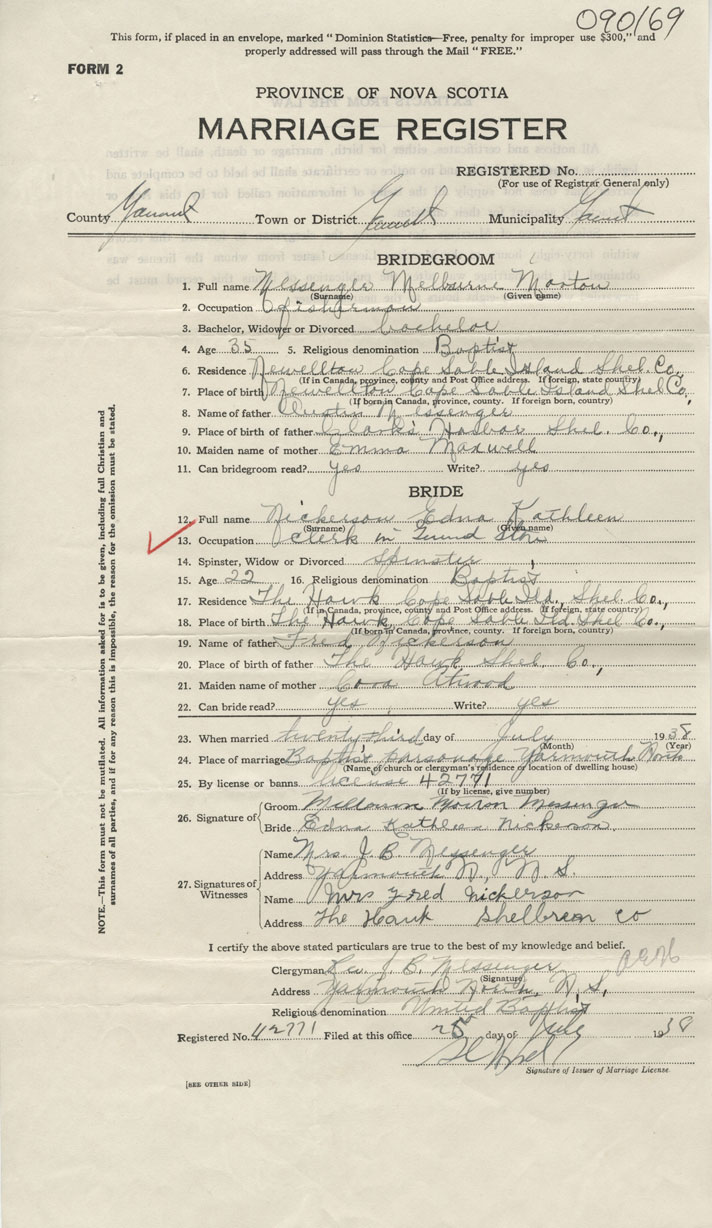 090169
This form, if placed in an envelope, marked "Dominion Statistics—Free, penalty for improper use $300," and
properly addressed will pass through the Mail "FREE."
FORM 2
PROVINCE OF NOVA SCOTIA
MARRIAGE REGISTER
REGISTERED No.
(For use of Registrar General only)
County Yarmouth Town or District Yarmouth Municipality Yarmouth
BRIDEGROOM
1. Full name Messenger Melburne Morton
(Surname) (Given name)
2. Occupation fisherman
3. Bachelor, Widower or Divorced bachelor
4. Age 35 5. Religious denomination Baptist
6. Residence Newellton Cape Sable Island Shel. Co.,
(If in Canada, province, county and Post Office address. If foreign, state country)
7. Place of birth Newellton Cape Sable Island Shel Co,
(If born in Canada, province, county. If foreign born, country)
8. Name of father Austin Messenger
9. Place of birth of father Clark's Harbor Shel. Co.,
10. Maiden name of mother Emma Maxwell
11. Can bridegroom read? yes Write? yes
BRIDE
12. Full name Nickerson Edna Kathleen
(Surname) (Given name)
13. Occupation clerk in Store
14. Spinster, Widow or Divorced Spinster
15. Age 22 16. Religious denomination Baptist
17. Residence The Hawk Cape Sable Isd., Shel Co.,
(If in Canada, province, county and Post Office address. If foreign, state country)
18. Place of birth The Hawk, Cape Sable Isd. Shel Co.,
(If born in Canada, province, county. If foreign born, country)
19. Name of father Fred Nickerson
20. Place of birth of father The Hawk Shel Co.,
21. Maiden name of mother Cora Atwood
22. Can bride read? yes Write? yes
23. When married twenty third day of July 1938
(Month) (Year)
24. Place of marriage Baptist parsonage Yarmouth North
(Name of church or clergyman's residence or location of dwelling house)
25. By license or banns license 42771
(If by license, give number)
26. Signature of
Groom Melburne Morton Messenger
Bride Edna Kathleen Nickerson
27. Signatures of Witnesses
Name Mrs. J. B. Messenger
Address Yarmouth N., N. S.
Name Mrs Fred Nickerson
Address The Hawk Shelbren Co
I certify the above stated particulars are true to the best of my knowledge and belief.
Clergyman Rev. J. B. Messenger
(Signature)
Address Yarmouth North, N. S.
Religious denomination United Baptist
Registered No. 42771 Filed at this office 25 day of July 1938
Signature of Issuer of Marriage License.
[SEE OTHER SIDE]
NOTE.—This form must not be mutilated. All information asked for is to be given, including full Christian and
surnames of all parties, and if for any reason this is impossible, the reason for the omission must be stated.